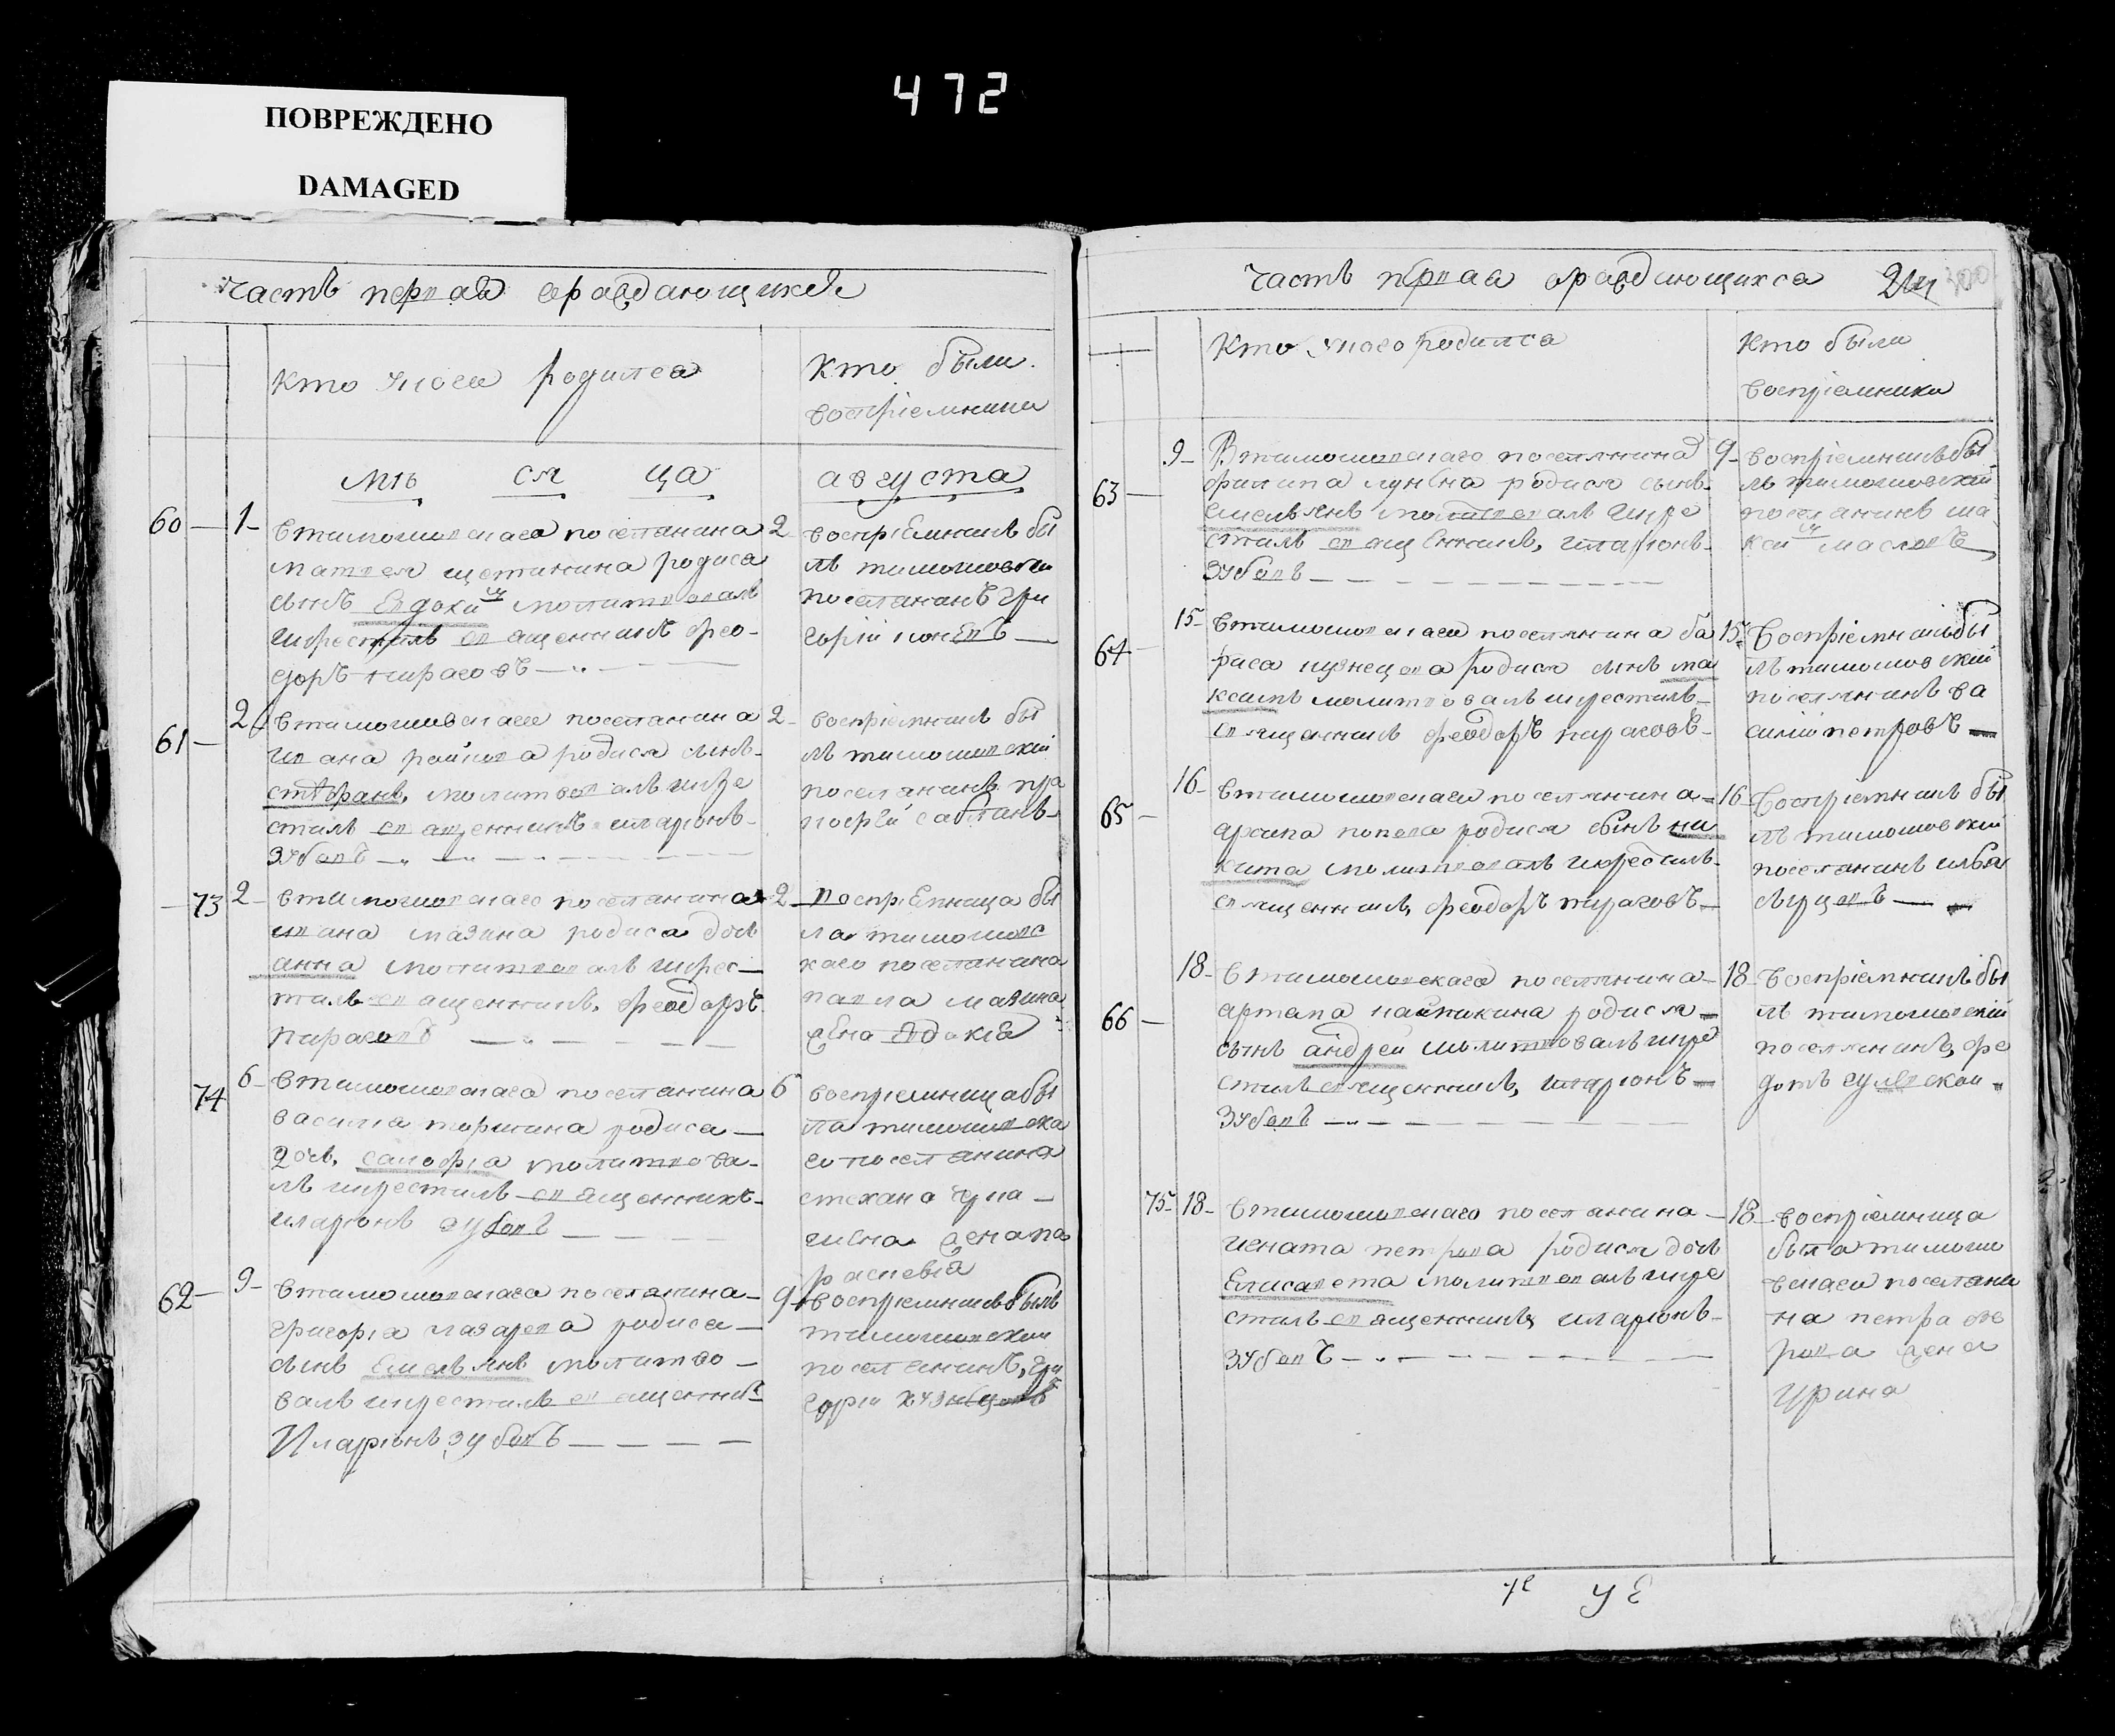 472
ПОВРЕЖДЕНО
DAMAGED
часть первая
кто укого родился
Кто были
воспріемники
мѣ ся ца
августа
60 1
втимошовскаго поселянина
матвея щетинина родися
сынъ Евдокий молитвовалъ
икрестилъ священникъ фео
доръ пираговъ
2
воспріемникъ бы
лъ тимошовски
поселанинъ гри
горій
61 2
втимошовскаго поселанина
ивана родися сынъ
стефанъ, молитвовалъ икре
стилъ священникъ иларіонъ
зубовъ
2
воспріемникъ бы
лъ тимошовскій
поселянинъ про
кофей
73 2
втимошовскаго поселанина
ивана мазина родиса дочь
анна молитвовалъ икрес
тилъ священникъ, феодоръ
пираговъ
2
воспріемница бы
ла тимошовс
каго поселанина
павла мазина
жена евдокия
74 6
втимошовскаго поселанина
василиа родиса
дочь, молитвова
лъ икрестилъ священникъ
иларіонъ зубовъ
6
воспріемница бы
ла тимошовска
го поселанина
жена па
раскевиа
62 9
втимошовскаго поселанина
григориа лазарева родиса
сынъ Емельянъ молитво
валъ икрестилъ священникъ
Иларіонъ зубовъ
9
воспріемникъ былъ
тимошовскии
поселанинъ, гри
гории кузнецовъ
часть первая
Кто укого родился
Кто были
воспріемники
63 9
Втимошовскаго поселянина
филипа лунѣна родися сынъ
емельянъ молитвовалъ икре
стилъ священникъ, иларіонъ
зубовъ
9
воспріемникъ бы
лъ тимошовскій
поселянинъ
масловъ
64 15
втимошовскаго поселянина
кузнецова родися сынъ ма
ксимъ молитвовалъ икрестилъ
священникъ феодоръ пираговъ
15
воспріемникъ бы
лъ тимошовский
поселянинъ ва
силий петровъ
65 16
втимошовскаго поселянина
архипа попова родися сынъ ни
кита молитвовалъ икрестилъ
священникъ, феодоръ пираговъ
16
воспріемникъ бы
лъ тимошовский
поселанинъ
66 18
втимошовскаго поселянина
родися
сынъ андрей молитвовалъ икре
стилъ священникъ, иларіонъ
зубовъ
18
воспріемникъ бы
лъ тимошовский
поселянинъ, фе
дотъ
75 18
втимошовскаго поселанина
игната петрова родися дочь
Елисавета молитвовалъ икре
стилъ священникъ иларіонъ
зубовъ
18
воспріемница
была тимошо
вскаго поселани
на петра
жена
Ирина